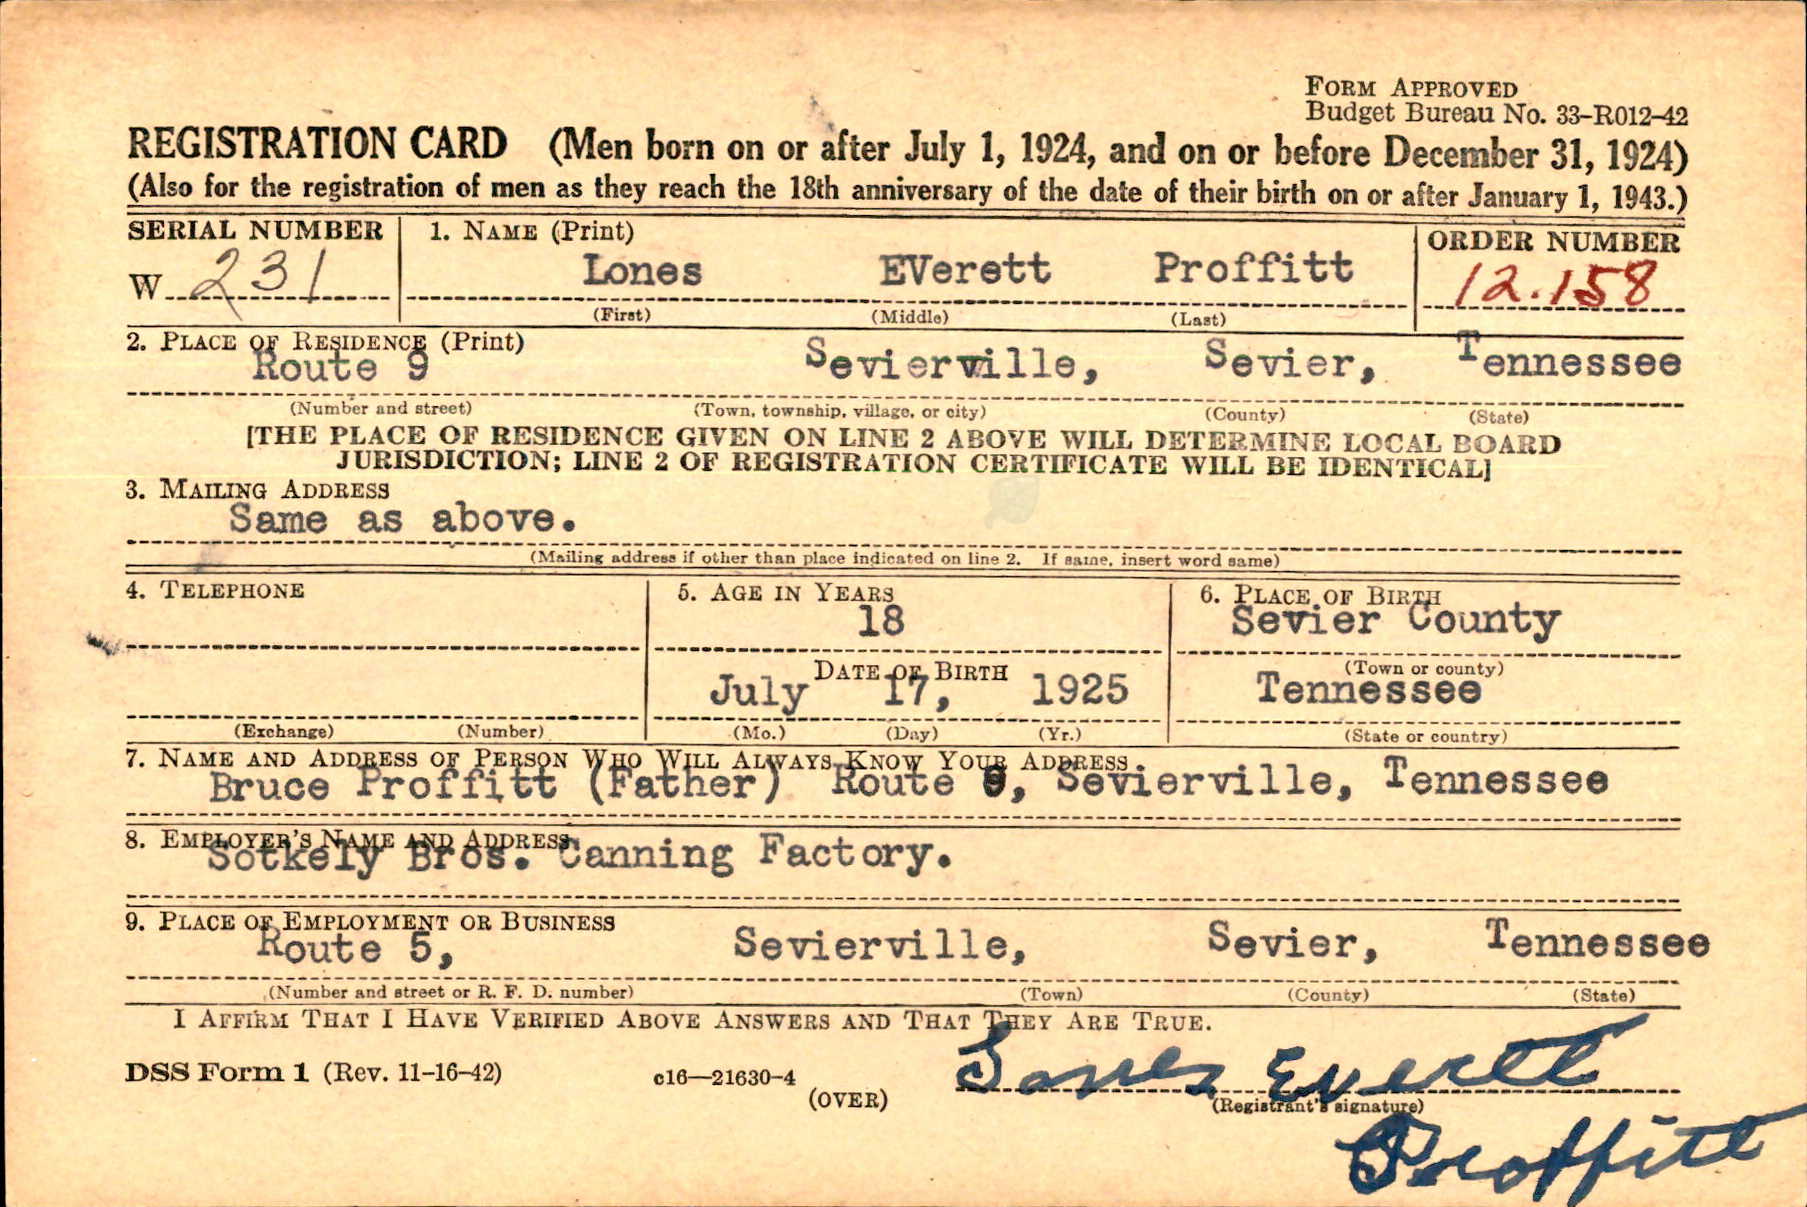 FORM APPROVED
Budget Bureau No. 33-R012-42
REGISTRATION CARD (Men born on or after July 1, 1924, and on or before December 31, 1924)
(Also for the registration of men as they reach the 18th anniversary of the date of their birth on or after January 1, 1943.)
SERIAL NUMBER 1. NAME (Print) ORDER NUMBER
W 231 Lones EVerett Proffitt 12.158
(First) (Middle) (Last)
2. PLACE OF RESIDENCE (Print)
Route 9 Sevierville, Sevier, Tennessee
(Number and street) (Town, township, village, or city) (County) (State)
[THE PLACE OF RESIDENCE GIVEN ON LINE 2 ABOVE WILL DETERMINE LOCAL BOARD
JURISDICTION; LINE 2 OF REGISTRATION CERTIFICATE WILL BE IDENTICAL]
3. MAILING ADDRESS
Same as above.
(Mailing address if other than place indicated on line 2. If same, insert word same)
4. TELEPHONE 5. AGE IN YEARS 6. PLACE OF BIRTH
18 Sevier County
DATE OF BIRTH (Town or county)
July 17, 1925 Tennessee
(Exchange) (Number) (Mo.) (Day) (Yr.) (State or country)
7. NAME AND ADDRESS OF PERSON WHO WILL ALWAYS KNOW YOUR ADDRESS
Bruce Proffitt (Father) Route 9, Sevierville, Tennessee
8. EMPLOYER'S NAME AND ADDRESS
Sotkely Bros. Canning Factory.
9. PLACE OF EMPLOYMENT OR BUSINESS
Route 5, Sevierville, Sevier, Tennessee
(Number and street or R. F. D. number) (Town) (County) (State)
I AFFIRM THAT I HAVE VERIFIED ABOVE ANSWERS AND THAT THEY ARE TRUE.
DSS Form 1 (Rev. 11-16-42) c16—21630-4 Lones Everett
(OVER) (Registrant's signature)
Proffitt